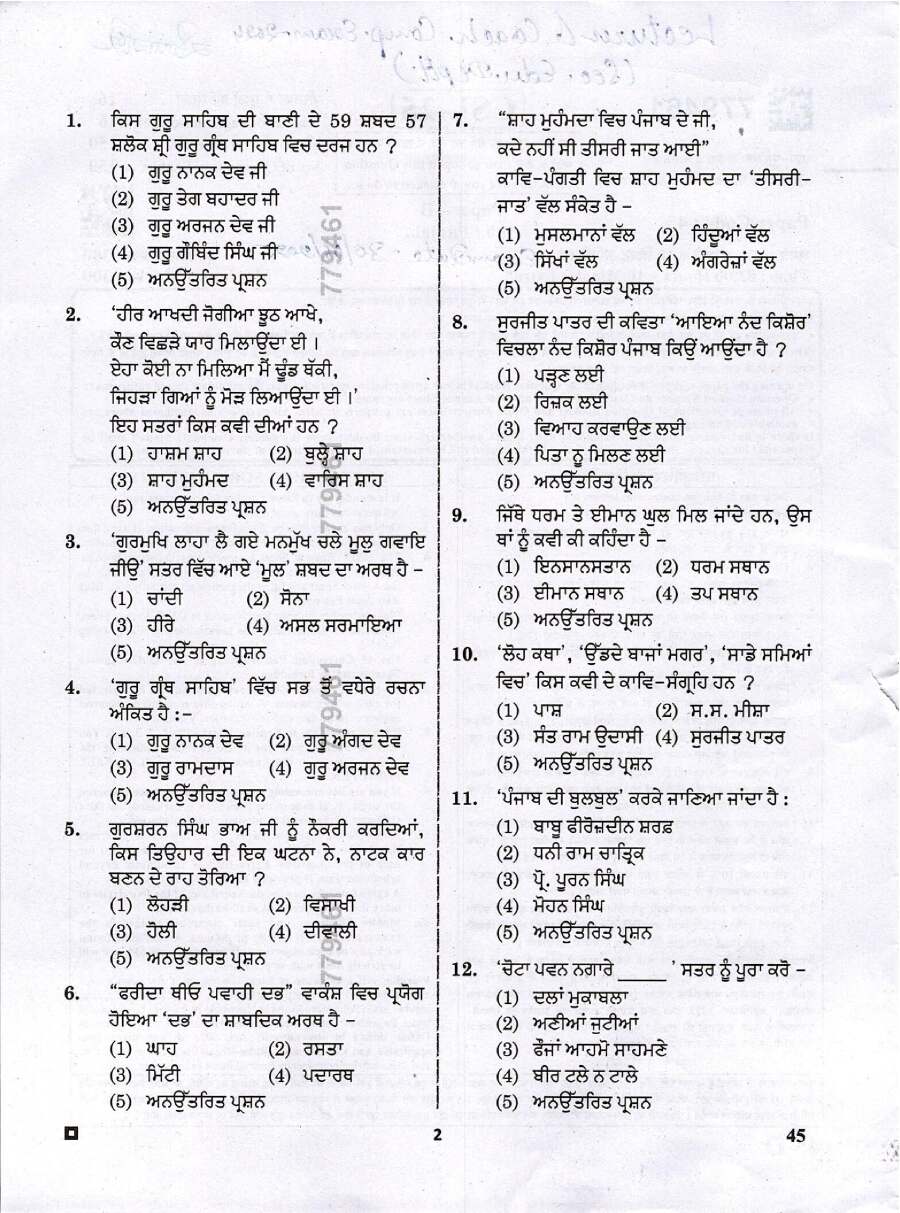 1. ਕਿਸ ਗੁਰੂ ਸਾਹਿਬ ਦੀ ਬਾਣੀ ਦੇ 59 ਸ਼ਬਦ 57
ਸ਼ਲੋਕ ਸ਼੍ਰੀ ਗੁਰੂ ਗ੍ਰੰਥ ਸਾਹਿਬ ਵਿਚ ਦਰਜ ਹਨ ?
(1) ਗੁਰੂ ਨਾਨਕ ਦੇਵ ਜੀ
(2) ਗੁਰੂ ਤੇਗ ਬਹਾਦਰ ਜੀ
(3) ਗੁਰੂ ਅਰਜਨ ਦੇਵ ਜੀ
(4) ਗੁਰੂ ਗੌਬਿੰਦ ਸਿੰਘ ਜੀ
(5) ਅਨਉੱਤਰਿਤ ਪ੍ਰਸ਼ਨ
2. 'ਹੀਰ ਆਖਦੀ ਜੋਗੀਆ ਝੂਠ ਆਖੇ,
ਕੌਣ ਵਿਛੜੇ ਯਾਰ ਮਿਲਾਉਂਦਾ ਈ ।
ਏਹਾ ਕੋਈ ਨਾ ਮਿਲਿਆ ਮੈਂ ਢੂੰਡ ਥੱਕੀ,
ਜਿਹੜਾ ਗਿਆਂ ਨੂੰ ਮੋੜ ਲਿਆਉਂਦਾ ਈ ।'
ਇਹ ਸਤਰਾਂ ਕਿਸ ਕਵੀ ਦੀਆਂ ਹਨ ?
(1) ਹਾਸ਼ਮ ਸ਼ਾਹ (2) ਬੁਲ੍ਹੇ ਸ਼ਾਹ
(3) ਸ਼ਾਹ ਮੁਹੰਮਦ (4) ਵਾਰਿਸ ਸ਼ਾਹ
(5) ਅਨਉੱਤਰਿਤ ਪ੍ਰਸ਼ਨ
3. 'ਗੁਰਮੁਖਿ ਲਾਹਾ ਲੈ ਗਏ ਮਨਮੁੱਖ ਚਲੇ ਮੂਲੁ ਗਵਾਇ
ਜੀਉ' ਸਤਰ ਵਿੱਚ ਆਏ 'ਮੂਲ' ਸ਼ਬਦ ਦਾ ਅਰਥ ਹੈ –
(1) ਚਾਂਦੀ (2) ਸੋਨਾ
(3) ਹੀਰੇ (4) ਅਸਲ ਸਰਮਾਇਆ
(5) ਅਨਉੱਤਰਿਤ ਪ੍ਰਸ਼ਨ
4. 'ਗੁਰੂ ਗ੍ਰੰਥ ਸਾਹਿਬ' ਵਿੱਚ ਸਭ ਤੋਂ ਵਧੇਰੇ ਰਚਨਾ
ਅੰਕਿਤ ਹੈ :–
(1) ਗੁਰੂ ਨਾਨਕ ਦੇਵ (2) ਗੁਰੂ ਅੰਗਦ ਦੇਵ
(3) ਗੁਰੂ ਰਾਮਦਾਸ (4) ਗੁਰੂ ਅਰਜਨ ਦੇਵ
(5) ਅਨਉੱਤਰਿਤ ਪ੍ਰਸ਼ਨ
5. ਗੁਰਸ਼ਰਨ ਸਿੰਘ ਭਾਅ ਜੀ ਨੂੰ ਨੌਕਰੀ ਕਰਦਿਆਂ,
ਕਿਸ ਤਿਉਹਾਰ ਦੀ ਇਕ ਘਟਨਾ ਨੇ, ਨਾਟਕ ਕਾਰ
ਬਣਨ ਦੇ ਰਾਹ ਤੋਰਿਆ ?
(1) ਲੋਹੜੀ (2) ਵਿਸਾਖੀ
(3) ਹੋਲੀ (4) ਦੀਵਾਲੀ
(5) ਅਨਉੱਤਰਿਤ ਪ੍ਰਸ਼ਨ
6. "ਫਰੀਦਾ ਥੀਓ ਪਵਾਹੀ ਦਭ" ਵਾਕੰਸ਼ ਵਿਚ ਪ੍ਰਯੋਗ
ਹੋਇਆ 'ਦਭ' ਦਾ ਸ਼ਾਬਦਿਕ ਅਰਥ ਹੈ –
(1) ਘਾਹ (2) ਰਸਤਾ
(3) ਮਿੱਟੀ (4) ਪਦਾਰਥ
(5) ਅਨਉੱਤਰਿਤ ਪ੍ਰਸ਼ਨ
7. "ਸ਼ਾਹ ਮੁਹੰਮਦਾ ਵਿਚ ਪੰਜਾਬ ਦੇ ਜੀ,
ਕਦੇ ਨਹੀਂ ਸੀ ਤੀਸਰੀ ਜਾਤ ਆਈ"
ਕਾਵਿ-ਪੰਗਤੀ ਵਿਚ ਸ਼ਾਹ ਮੁਹੰਮਦ ਦਾ 'ਤੀਸਰੀ-
ਜਾਤ' ਵੱਲ ਸੰਕੇਤ ਹੈ –
(1) ਮੁਸਲਮਾਨਾਂ ਵੱਲ (2) ਹਿੰਦੂਆਂ ਵੱਲ
(3) ਸਿੱਖਾਂ ਵੱਲ (4) ਅੰਗਰੇਜ਼ਾਂ ਵੱਲ
(5) ਅਨਉੱਤਰਿਤ ਪ੍ਰਸ਼ਨ
8. ਸੁਰਜੀਤ ਪਾਤਰ ਦੀ ਕਵਿਤਾ 'ਆਇਆ ਨੰਦ ਕਿਸ਼ੋਰ'
ਵਿਚਲਾ ਨੰਦ ਕਿਸ਼ੋਰ ਪੰਜਾਬ ਕਿਉਂ ਆਉਂਦਾ ਹੈ ?
(1) ਪੜ੍ਹਣ ਲਈ
(2) ਰਿਜ਼ਕ ਲਈ
(3) ਵਿਆਹ ਕਰਵਾਉਣ ਲਈ
(4) ਪਿਤਾ ਨੂ ਮਿਲਣ ਲਈ
(5) ਅਨਉੱਤਰਿਤ ਪ੍ਰਸ਼ਨ
9. ਜਿੱਥੇ ਧਰਮ ਤੇ ਈਮਾਨ ਘੁਲ ਮਿਲ ਜਾਂਦੇ ਹਨ, ਉਸ
ਥਾਂ ਨੂੰ ਕਵੀ ਕੀ ਕਹਿੰਦਾ ਹੈ –
(1) ਇਨਸਾਨਸਤਾਨ (2) ਧਰਮ ਸਥਾਨ
(3) ਈਮਾਨ ਸਥਾਨ (4) ਤਪ ਸਥਾਨ
(5) ਅਨਉੱਤਰਿਤ ਪ੍ਰਸ਼ਨ
10. 'ਲੋਹ ਕਥਾ', 'ਉੱਡਦੇ ਬਾਜਾਂ ਮਗਰ', 'ਸਾਡੇ ਸਮਿਆਂ
ਵਿਚ' ਕਿਸ ਕਵੀ ਦੇ ਕਾਵਿ-ਸੰਗ੍ਰਹਿ ਹਨ ?
(1) ਪਾਸ਼ (2) ਸ.ਸ. ਮੀਸ਼ਾ
(3) ਸੰਤ ਰਾਮ ਉਦਾਸੀ (4) ਸੁਰਜੀਤ ਪਾਤਰ
(5) ਅਨਉੱਤਰਿਤ ਪ੍ਰਸ਼ਨ
11. 'ਪੰਜਾਬ ਦੀ ਬੁਲਬੁਲ' ਕਰਕੇ ਜਾਣਿਆ ਜਾਂਦਾ ਹੈ :
(1) ਬਾਬੂ ਫੀਰੋਜ਼ਦੀਨ ਸ਼ਰਫ਼
(2) ਧਨੀ ਰਾਮ ਚਾਤ੍ਰਿਕ
(3) ਪ੍ਰੋ. ਪੂਰਨ ਸਿੰਘ
(4) ਮੋਹਨ ਸਿੰਘ
(5) ਅਨਉੱਤਰਿਤ ਪ੍ਰਸ਼ਨ
12. 'ਚੋਟਾ ਪਵਨ ਨਗਾਰੇ _____ ' ਸਤਰ ਨੂੰ ਪੂਰਾ ਕਰੋ –
(1) ਦਲਾਂ ਮੁਕਾਬਲਾ
(2) ਅਣੀਆਂ ਜੁਟੀਆਂ
(3) ਫੌਜਾਂ ਆਹਮੋ ਸਾਹਮਣੇ
(4) ਬੀਰ ਟਲੇ ਨ ਟਾਲੇ
(5) ਅਨਉੱਤਰਿਤ ਪ੍ਰਸ਼ਨ
779461
779461
779461
779461
2
45